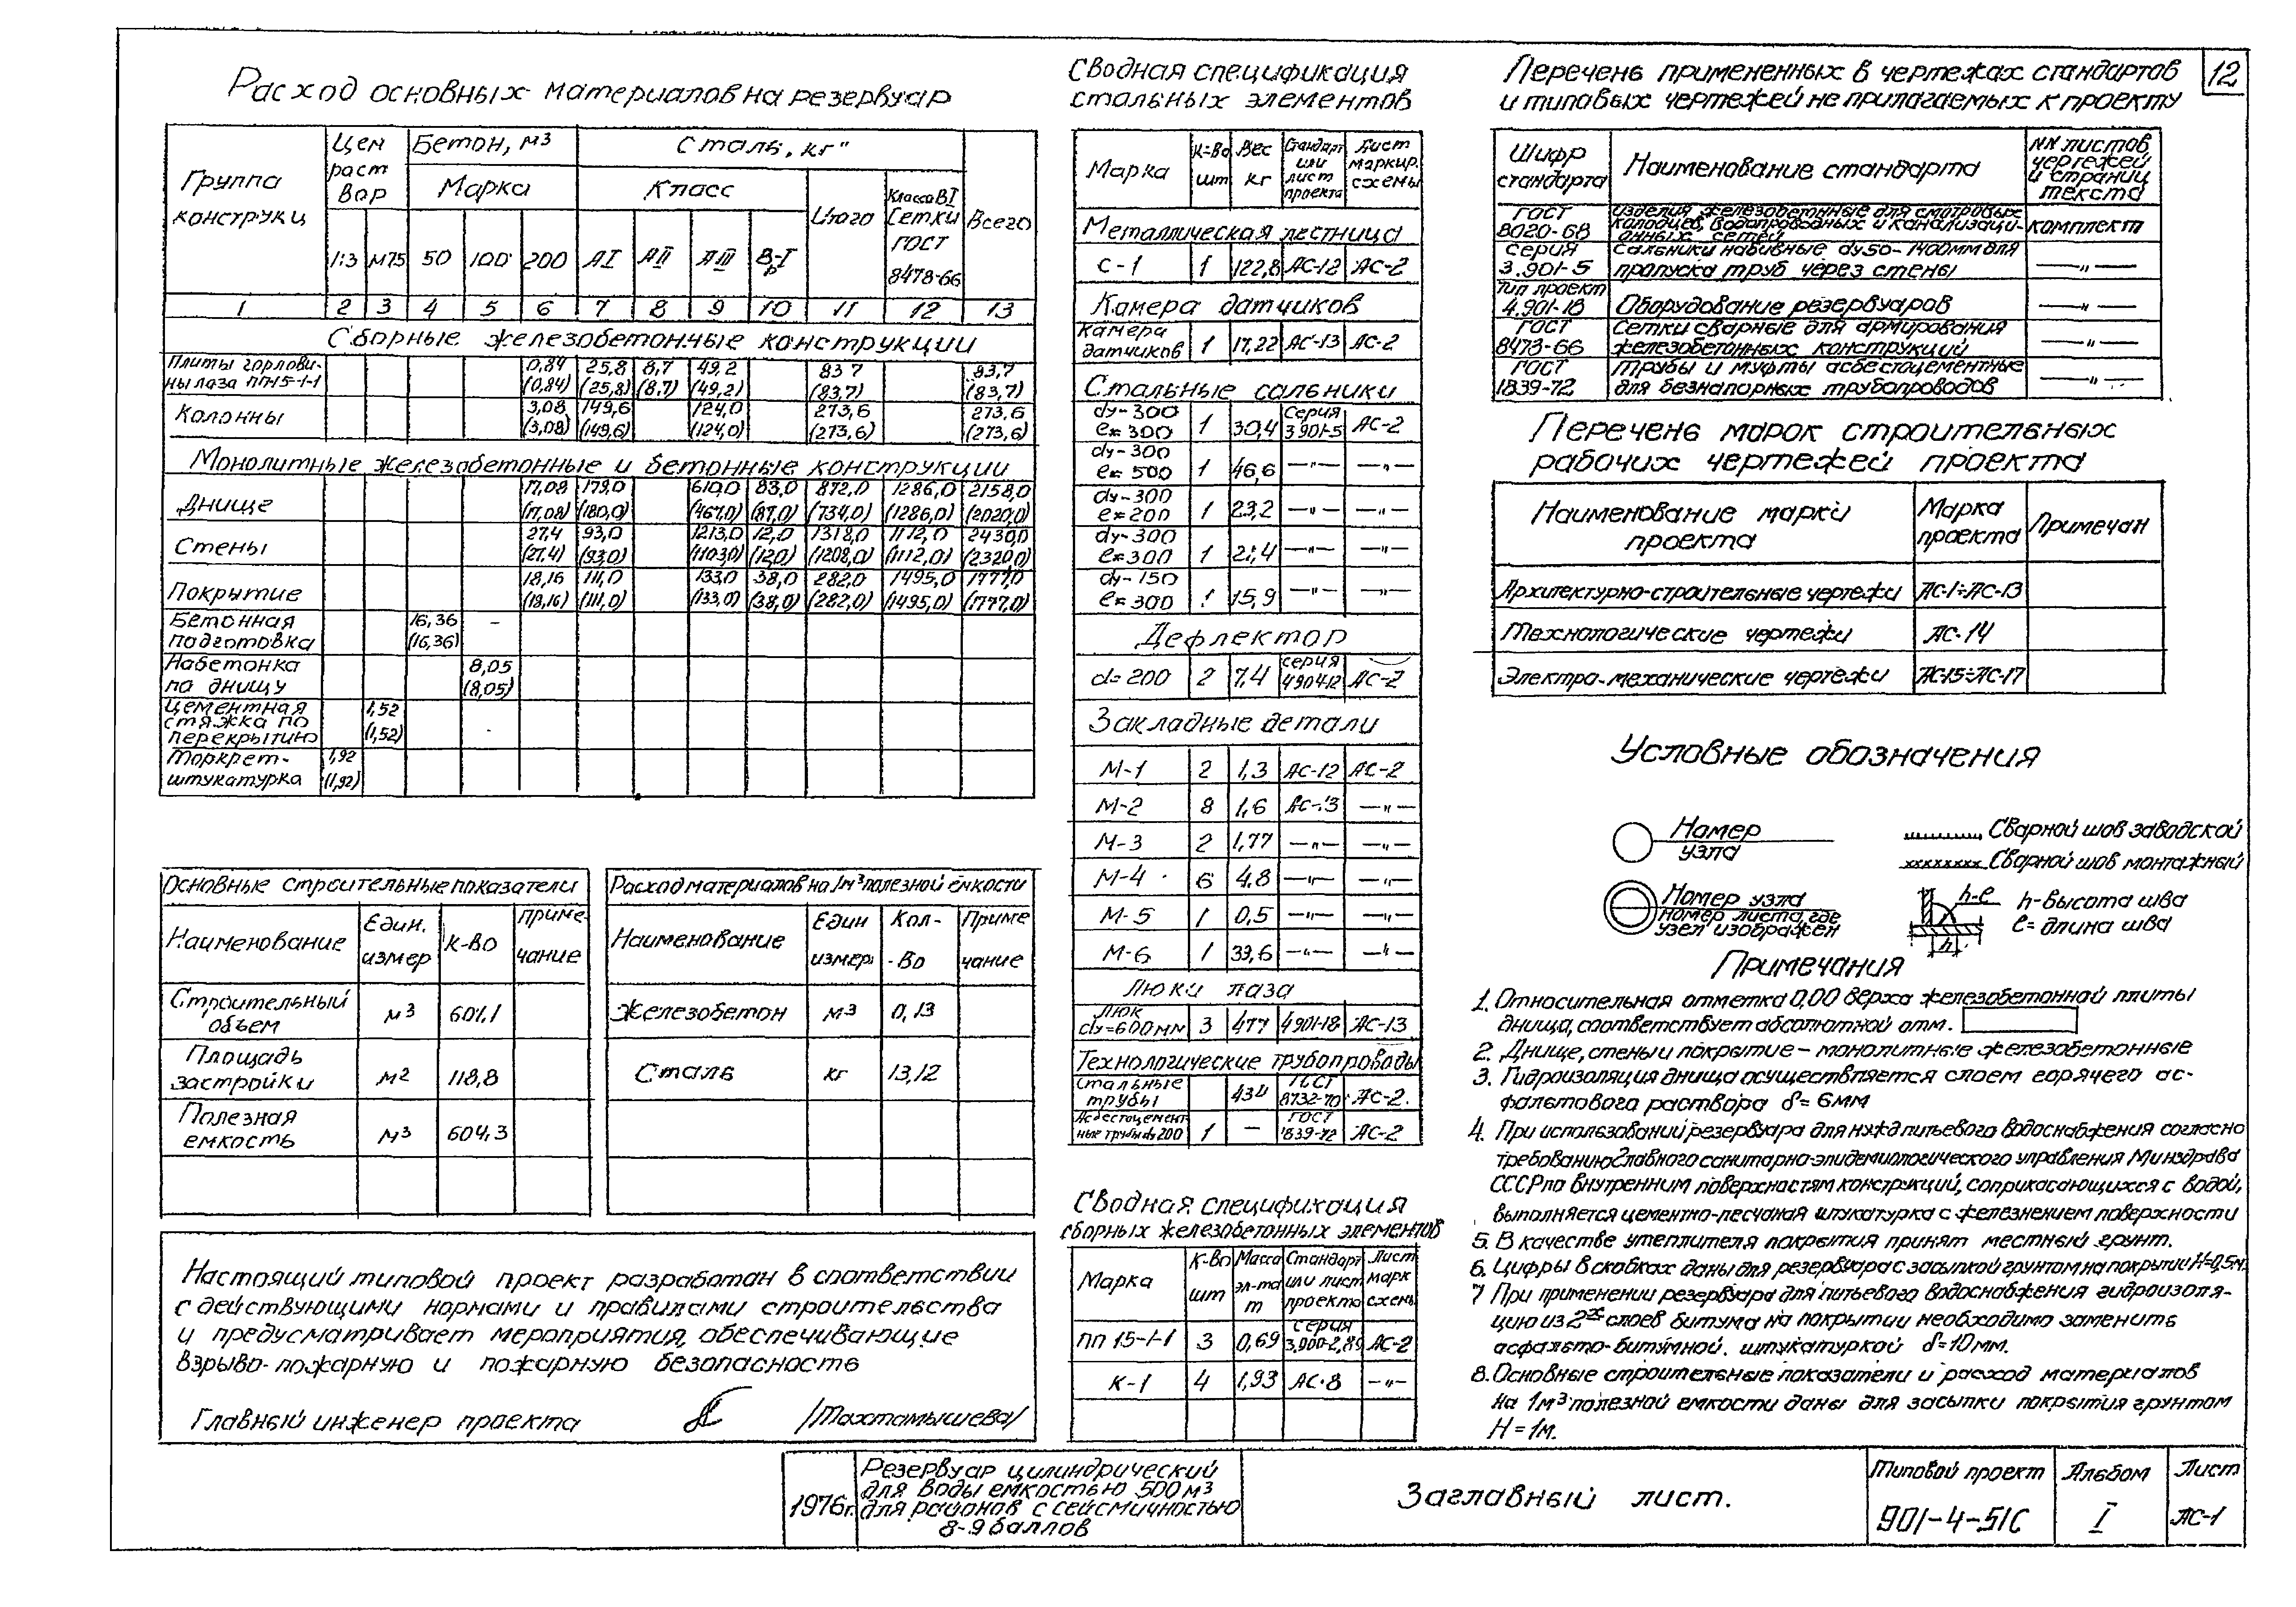 12
Расход основных материалов на резервуар
Группа конструкц | Цем раствор | Бетон, м³ | Сталь, кг"
Марка | Класс | Итого | Класса ВI Сетки ГОСТ 8478-66 | Всего
1:3 | М75 | 50 | 100 | 200 | АI | АII | АIII | Вр-I
1 | 2 | 3 | 4 | 5 | 6 | 7 | 8 | 9 | 10 | 11 | 12 | 13
Сборные железобетонные конструкции
Плиты горлови- | 0,84 | 25,8 | 8,7 | 49,2 | 83 7 | 83,7
ны лаза ПП15-1-1 | (0,84) | (25,8) | (8,7) | (49,2) | (83,7) | (83,7)
Колонны | 3,08 | 149,6 | 124,0 | 273,6 | 273.6
(3,08) | (149,6) | (124,0) | (273,6) | (273,6)
Монолитные железобетонные и бетонные конструкции
Днище | 17,08 | 179,0 | 610,0 | 83,0 | 872,0 | 1286,0 | 2158,0
(17,08) | (180,0) | (467,0) | (87,0) | (734,0) | (1286,0) | (2020,0)
Стены | 27,4 | 93,0 | 1213,0 | 12,0 | 1318,0 | 1112,0 | 2430,0
(27,4) | (93,0) | (1103,0) | (12,0) | (1208,0) | (1112,0) | (2320,0)
Покрытие | 18,16 | 111,0 | 133,0 | 38,0 | 282,0 | 1495,0 | 1777,0
(19,16) | (111,0) | (133,0) | (38,0) | (282,0) | (1495,0) | (1777,0)
Бетонная | 16,36 | -
подготовка | (16,36)
Набетонка | 8,05
по днищу | (8,05)
Цементная | 1,52
стяжка по
перекрытию | (1,52)
Торкрет- | 1,92
штукатурка | (1,92)
Основные строительные показатели
Наименование | Един. измер | к-во | Приме чание
Строительный объем | м³ | 601,1
Площадь застройки | м² | 118,8
Полезная емкость | м³ | 604,3
Расход материалов на 1м³ полезной ёмкости
Наименование | Един измер | Кол- -во | Приме чание
Железобетон | м³ | 0,13
Сталь | кг | 13,12
Настоящий типовой проект разработан в соответствии
с действующими нормами и правилами строительства
и предусматривает мероприятия, обеспечивающие
взрыво-пожарную и пожарную безопасность
Главный инженер проекта /Тахтамышева/
Сводная спецификация
стальных элементов
Марка | К-во шт | Вес кг | Стандарт или лист проекта | Лист маркир. схемы
Металлическая лестница
С-1 | 1 | 122,8 | АС-12 | АС-2
Камера датчиков
Камера датчиков | 1 | 17,22 | АС-13 | АС-2
Стальные сальники
dу-300 ℓ=300 | 1 | 30,4 | Серия 3 901-5 | АС-2
dу-300 ℓ=500 | 1 | 46,6 | —"— | —"—
dу-300 ℓ=200 | 1 | 23,2 | —"— | —"—
dу-300 ℓ=300 | 1 | 21,4 | —"— | —"—
dу-150 ℓ=300 | 1 | 15,9 | —"— | —"—
Дефлектор
d=200 | 2 | 7,4 | серия 4 904-12 | АС-2
Закладные детали
М-1 | 2 | 1,3 | АС-12 | АС-2
М-2 | 8 | 1,6 | АС-13 | —"—
М-3 | 2 | 1,77 | —"— | —"—
М-4 | 6 | 4,8 | —"— | —"—
М-5 | 1 | 0,5 | —"— | —"—
М-6 | 1 | 39,6 | —"— | —"—
Люки лаза
Люк dу=600мм | 3 | 477 | 4 901-18 | АС-13
Технологические трубопроводы
Стальные трубы | 434 | ГОСТ 8732-70 | АС-2.
Асбестоцемент- ные трубы dу200 | 1 | — | ГОСТ 1839-72 | АС-2
Сводная спецификация
сборных железобетонных элементов
Марка | К-во шт | Масса эл-та т | Стандарт или лист проекта | Лист марк схемы
ПП 15-1-1 | 3 | 0,69 | серия 3.900-2, в.9 | АС-2
К-1 | 4 | 1,93 | АС-8 | —"—
Перечень примененных в чертежах стандартов
и типовых чертежей не прилагаемых к проекту
Шифр стандарта | Наименование стандарта | NN листов чертежей и страниц текста
ГОСТ 8020-68 | Изделия железобетонные для смотровых колодцев, водопроводных и канализаци- онных сетей | комплект
Серия 3.901-5 | Сальники набивные dу50-1400мм для пропуска труб через стены | —"—
Тип проект 4.901-18 | Оборудование резервуаров | —"—
ГОСТ 8473-66 | Сетки сварные для армирования железобетонных конструкций | —"—
ГОСТ 1839-72 | Трубы и муфты асбестоцементные для безнапорных трубопроводов | —"—
Перечень марок строительных
рабочих чертежей проекта
Наименование марки проекта | Марка проекта | Примечан
Архитектурно-строительные чертежи | АС-1÷АС-13
Технологические чертежи | АС-14
Электро-механические чертежи | АС-15÷АС-17
Условные обозначения
Номер узла
Сварной шов заводской
Сварной шов монтажный
Номер узла
номер листа, где
узел изображен
h-ℓ
h
h-высота шва
ℓ=длина шва
Примечания
1. Относительная отметка 0,00 верха железобетонной плиты
днища, соответствует абсолютной отм.
2. Днище, стены и покрытие - монолитные железобетонные
3. Гидроизоляция днища осуществляется слоем горячего ас-
фальтового раствора δ=6мм
4. При использовании резервуара для нужд питьевого водоснабжения согласно
требованию Главного санитарно-эпидемиологического управления Минздрава
СССР по внутренним поверхностям конструкций, соприкасающихся с водой,
выполняется цементно-песчаная штукатурка с железнением поверхности
5. В качестве утеплителя покрытия принят местный грунт.
6. Цифры в скобках даны для резервуара с засыпкой грунтом на покрытии Н=0,5м.
7 При применении резервуара для питьевого водоснабжения гидроизоля-
цию из 2ˣ слоев битума на покрытии необходимо заменить
асфальто-битумной. штукатуркой δ=10мм.
8. Основные строительные показатели и расход материалов
на 1м³ полезной емкости даны для засыпки покрытия грунтом
Н=1м.
1976г.
Резервуар цилиндрический
для воды емкостью 500м³
для районов с сейсмичностью
8-9 баллов
Заглавный лист.
Типовой проект
901-4-51С
Альбом
I
Лист
АС-1